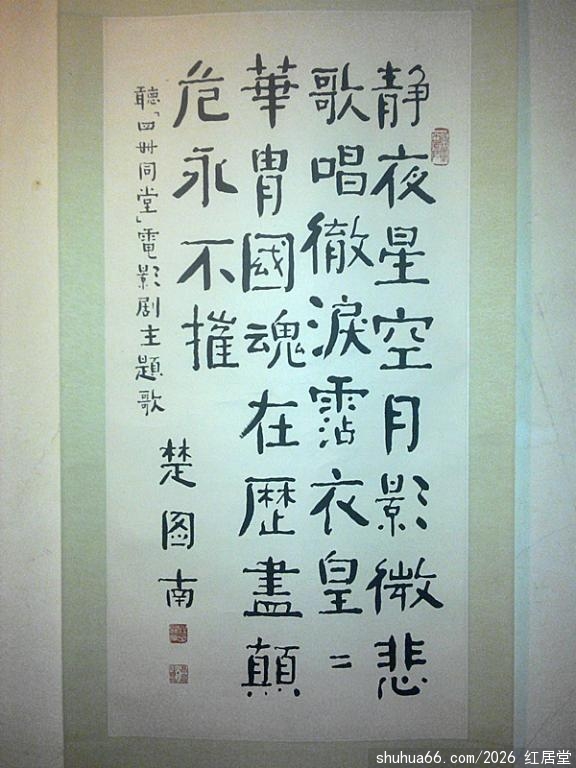 静夜星空月影微悲
歌唱徹淚霑衣皇〻
華胄國魂在歷盡顛
危永不摧
聽「四世同堂」電影剧主題歌
楚图南
shuhua66.com/2026 红居堂